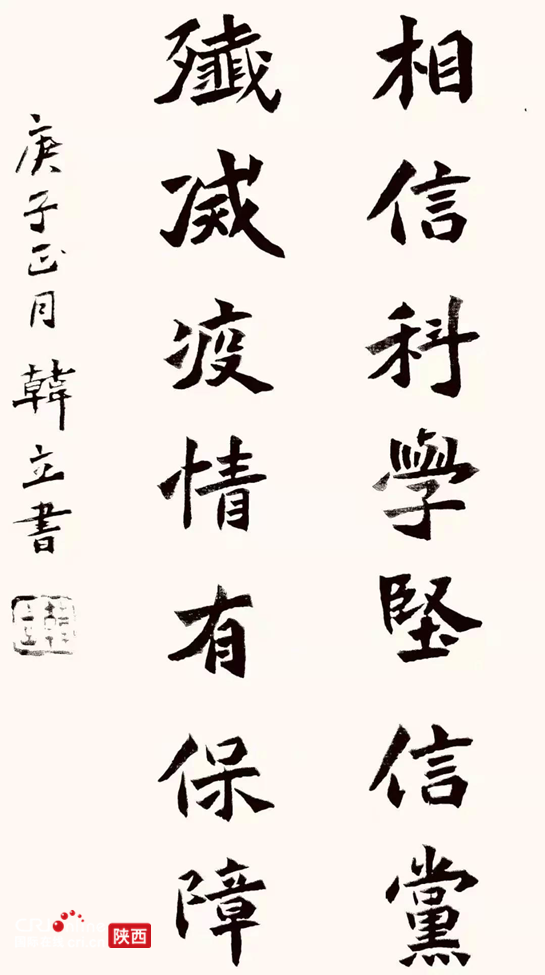 相信科學堅信黨
殲滅疫情有保障
庚子正月韓立書
陕西